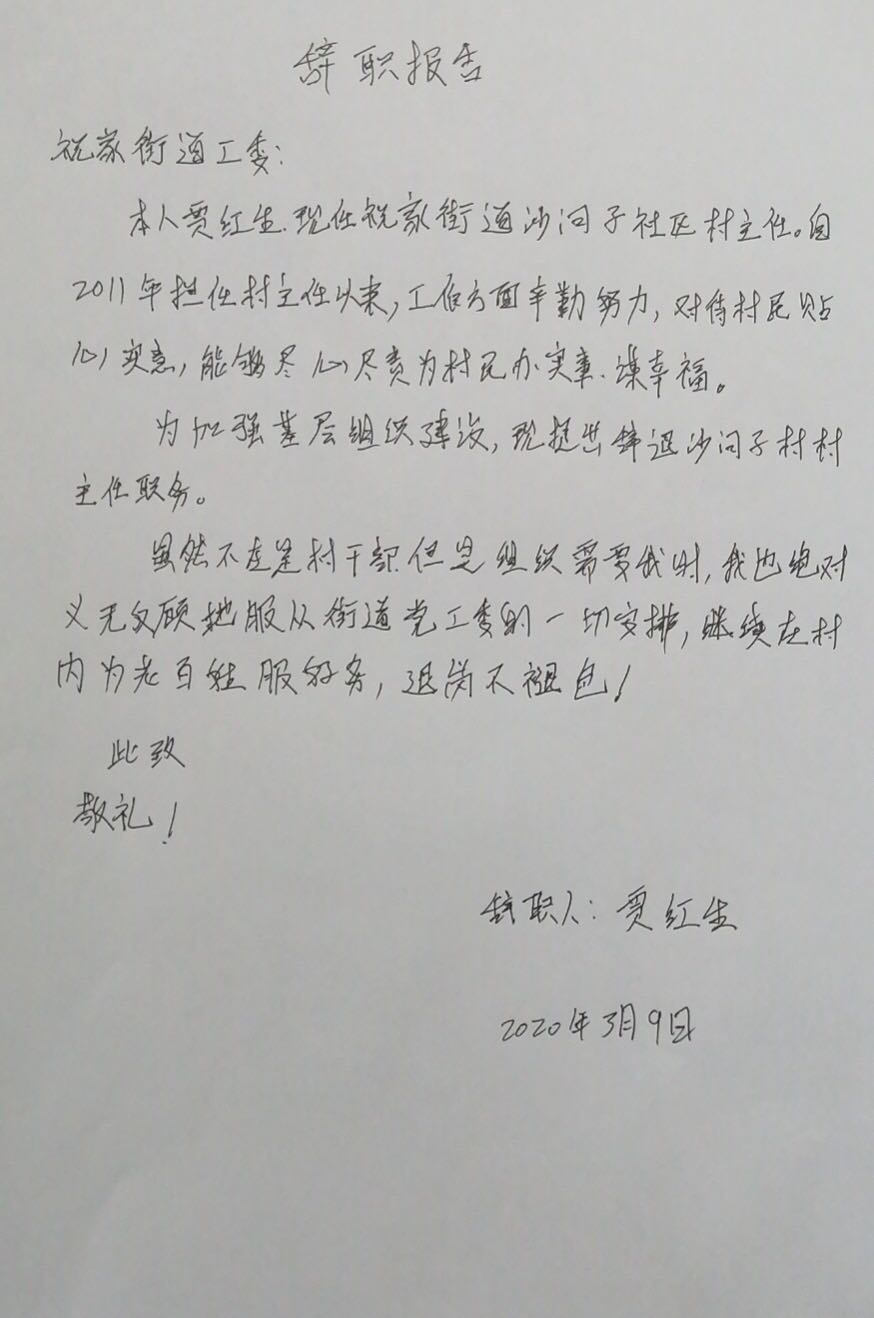 辞职报告
祝家街道工委:
本人贾红生.现任祝家街道沙河子社区村主任。自
2011年担任村主任以来,工作方面辛勤努力,对待村民贴
心实意,能够尽心尽责为村民办实事.谋幸福。
为加强基层组织建设,现提出辞退沙河子村村
主任职务。
虽然不在是村干部.但是组织需要我时,我也绝对
义无反顾地服从街道党工委的一切安排,继续在村
内为老百姓服好务,退岗不褪色!
此致
敬礼!
辞职人:贾红生
2020年3月9日